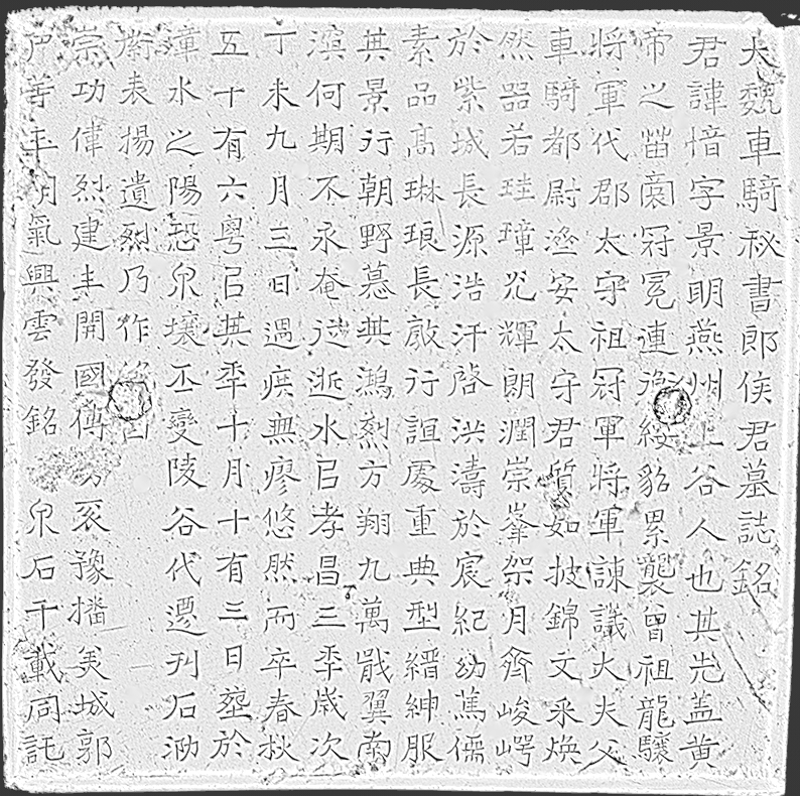 大魏車騎秘書郎侯君墓誌銘
君諱愔字景明燕州上谷人也其先盖黄
帝之苗裔冠冕連彌綬貂累襲曾祖龍驤
將軍代郡太守祖冠軍將軍諫議大夫父
車騎都尉遼安太守君質如披錦文釆煥
然器若珪璋光輝朗潤崇峯架月齊峻崿
於紫城長源浩汗啓洪濤於宸紀幼蔫儒
素品高琳琅長敲行誼處重典型縉紳服
其景行朝野慕其鴻烈方翔九萬戢翼南
濱何期不永奄從逝水㠯孝昌三年歲次
丁未九月三日遇疾無瘳悠然而卒春秋
五十有六粤㠯其年十月十有三日塟於
漳水之陽恐泉壤丕變陵谷代遷刊石泐
表揚遺烈乃作
崇功偉烈建丰開國傳豫播美城郭
氣興雲發銘泉石千載同託